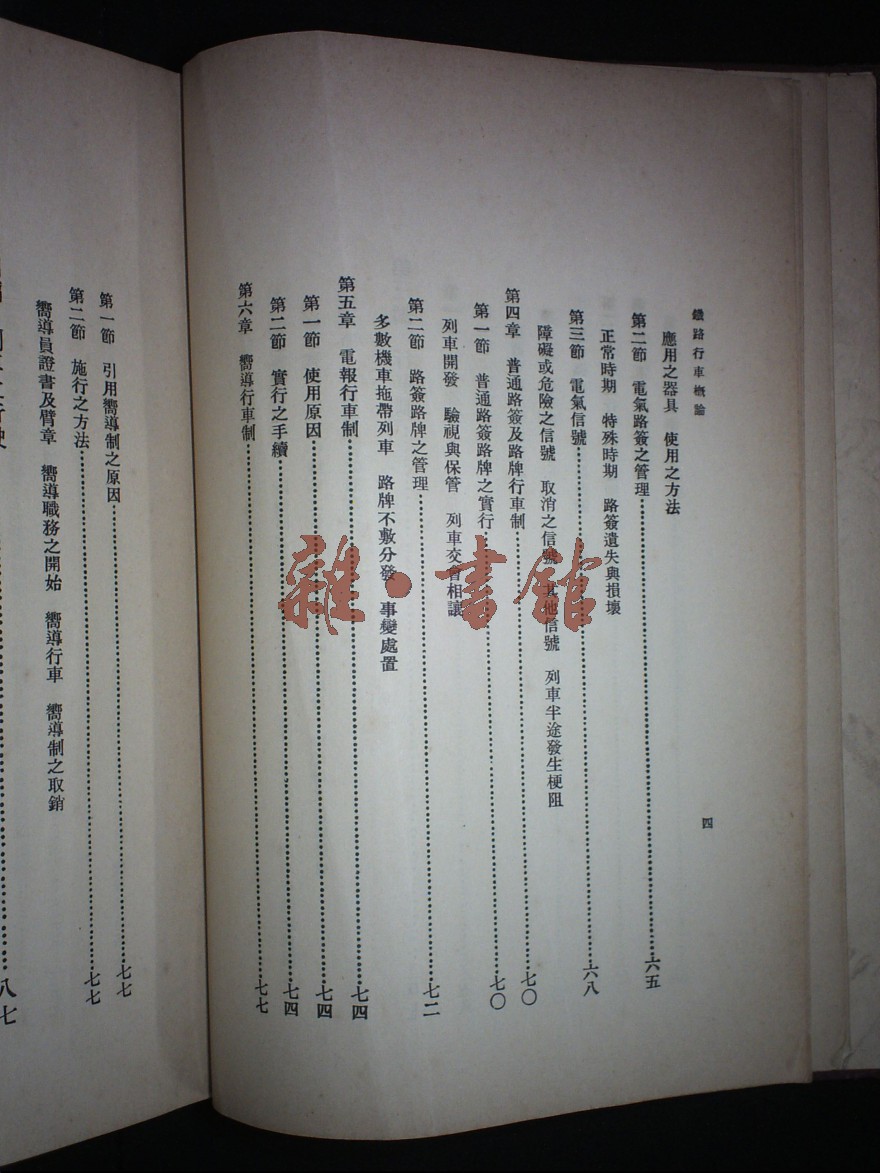 鐵路行車概論
四
應用之器具 使用之方法
第二節 電氣路簽之管理……六五
正常時期 特殊時期 路簽遺失與損壞
第三節 電氣信號……六八
障礙或危險之信號 取消之信號 其他信號 列車半途發生梗阻
第四章 普通路簽及路牌行車制……七〇
第一節 普通路簽路牌之實行……七〇
列車開發 驗視與保管 列車交會相讓
第二節 路簽路牌之管理……七二
多數機車拖帶列車 路牌不敷分發 事變處置
第五章 電報行車制……七四
第一節 使用原因……七四
第二節 實行之手續……七四
第六章 嚮導行車制……七七
第一節 引用嚮導制之原因……七七
第二節 施行之方法……七七
嚮導員證書及臂章 嚮導職務之開始 嚮導行車 嚮導制之取銷
……八七
雜·書館